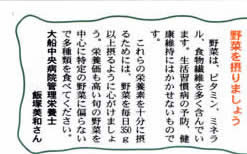 野菜を摂りましょう
野菜は、ビタミン、ミネラ
ル、食物繊維を多く含んでい
ます。生活習慣病の予防、健
康維持にはかかせないもので
す。
これらの栄養素を十分に摂
るためには、野菜を毎日350g
以上摂るように心がけましょ
う。栄養価も高い旬の野菜を
中心に特定の野菜に偏らない
で多種類を食べてください。
大船中央病院管理栄養士
飯塚美和さん